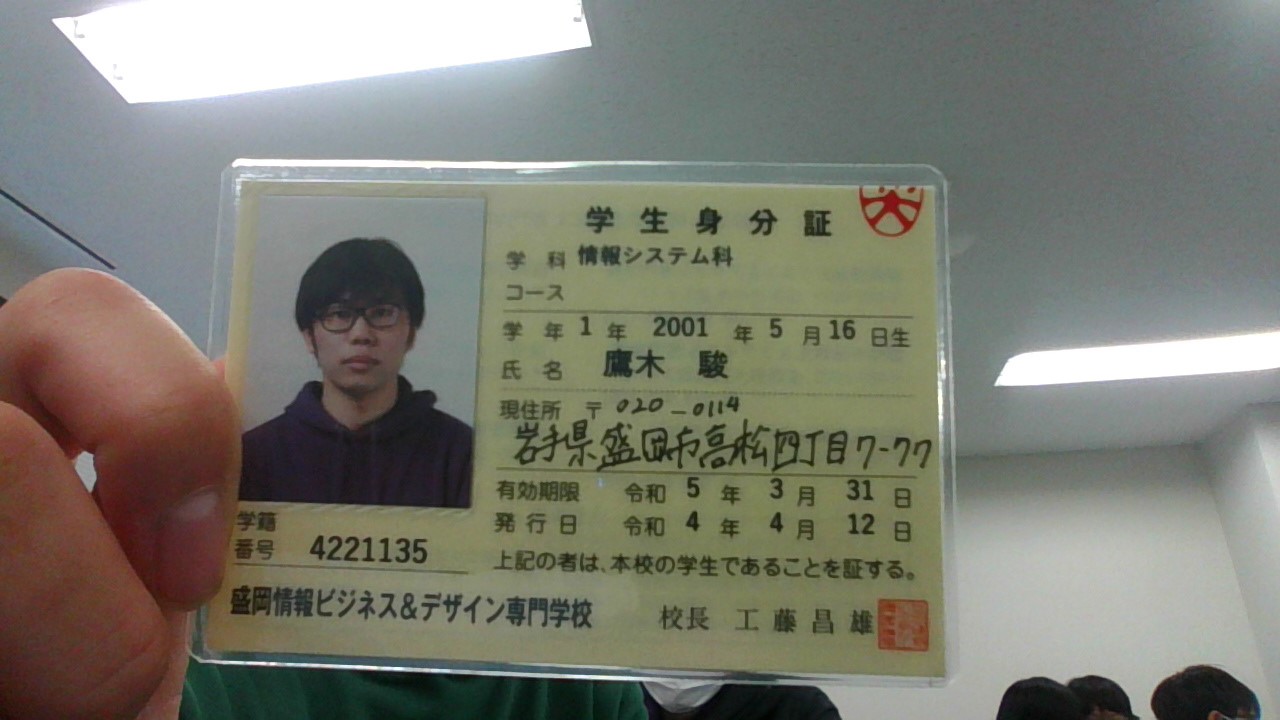 学生身分証
学科 情報システム科
コース
学年 1年 2001年5月16日生
氏名 鷹木 駿
現住所 〒020-0114
岩手県盛岡市高松四丁目7-77
有効期限 令和5年3月31日
発行日 令和4年4月12日
上記の者は、本校の学生であることを証する。
学籍
番号 4221135
盛岡情報ビジネス&デザイン専門学校
校長 工藤昌雄